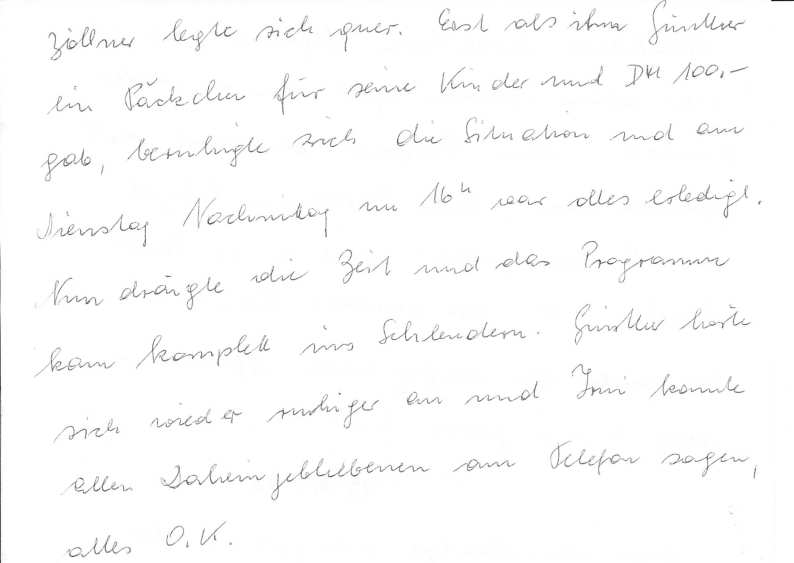 Zöllner legte sich quer. Erst als ihm Günther
ein Päckchen für seine Kinder und DM 100,-
gab, beruhigte sich die Situation und am
Dienstag Nachmittag um 16h war alles erledigt.
Nun drängte die Zeit und das Programm
kam komplett ins Schleudern. Günther hörte
sich wieder ruhiger an und Irmi konnte
allen Daheimgebliebenen am Telefon sagen,
alles O.K.